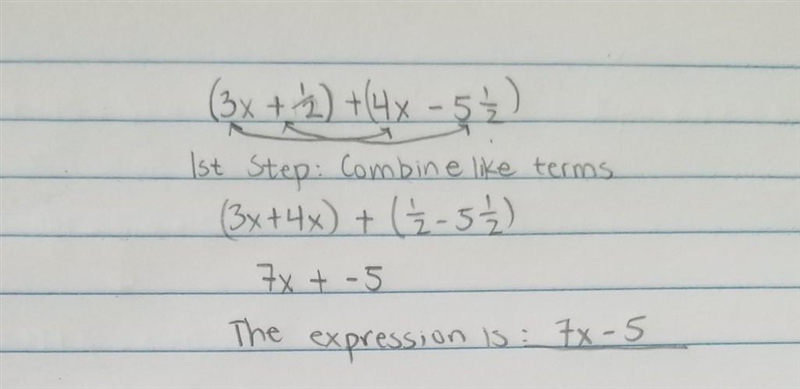 (3x + 1/2) + (4x - 5 1/2)
1st Step: Combine like terms
(3x + 4x) + (1/2 - 5 1/2)
7x + -5
The expression is: 7x - 5